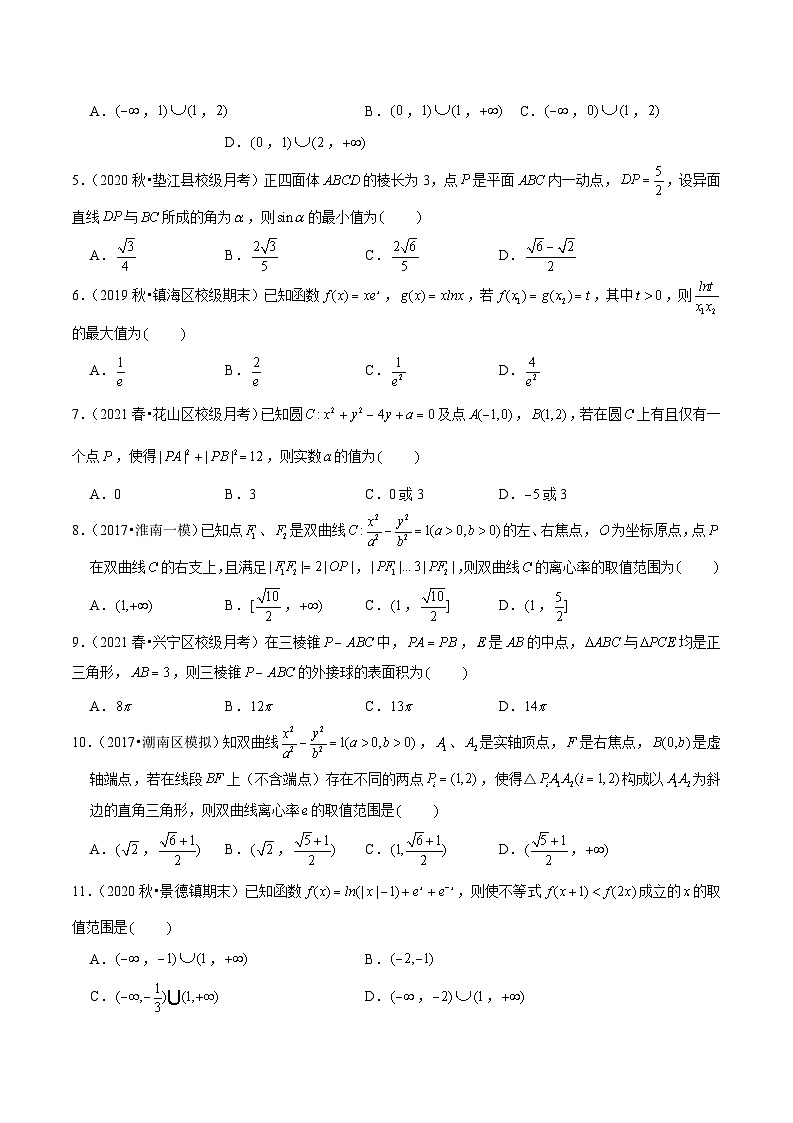 A.(-∞,1)∪(1,2)    B.(0,1)∪(1,+∞)    C.(-∞,0)∪(1,2)
D.(0,1)∪(2,+∞)
5.(2020秋•垫江县校级月考)正四面体ABCD的棱长为3,点P是平面ABC内一动点,DP=5/2,设异面
直线DP与BC所成的角为α,则sinα的最小值为(    )
A.√3/4    B.2√3/5    C.2√6/5    D.(√6-√2)/2
6.(2019秋•镇海区校级期末)已知函数f(x)=xeˣ,g(x)=xlnx,若f(x₁)=g(x₂)=t,其中t>0,则lnt/(x₁x₂)
的最大值为(    )
A.1/e    B.2/e    C.1/e²    D.4/e²
7.(2021春•花山区校级月考)已知圆C:x²+y²-4y+a=0及点A(-1,0),B(1,2),若在圆C上有且仅有一
个点P,使得|PA|²+|PB|²=12,则实数a的值为(    )
A.0    B.3    C.0或3    D.-5或3
8.(2017•淮南一模)已知点F₁、F₂是双曲线C:x²/a²-y²/b²=1(a>0,b>0)的左、右焦点,O为坐标原点,点P
在双曲线C的右支上,且满足|F₁F₂|=2|OP|,|PF₁|…3|PF₂|,则双曲线C的离心率的取值范围为(    )
A.(1,+∞)    B.[√10/2,+∞)    C.(1,√10/2]    D.(1,5/2]
9.(2021春•兴宁区校级月考)在三棱锥P-ABC中,PA=PB,E是AB的中点,ΔABC与ΔPCE均是正
三角形,AB=3,则三棱锥P-ABC的外接球的表面积为(    )
A.8π    B.12π    C.13π    D.14π
10.(2017•潮南区模拟)知双曲线x²/a²-y²/b²=1(a>0,b>0),A₁、A₂是实轴顶点,F是右焦点,B(0,b)是虚
轴端点,若在线段BF上(不含端点)存在不同的两点Pᵢ=(1,2),使得△PᵢA₁A₂(i=1,2)构成以A₁A₂为斜
边的直角三角形,则双曲线离心率e的取值范围是(    )
A.(√2,(√6+1)/2)    B.(√2,(√5+1)/2)    C.(1,(√6+1)/2)    D.((√5+1)/2,+∞)
11.(2020秋•景德镇期末)已知函数f(x)=ln(|x|-1)+eˣ+e⁻ˣ,则使不等式f(x+1)<f(2x)成立的x的取
值范围是(    )
A.(-∞,-1)∪(1,+∞)    B.(-2,-1)
C.(-∞,-1/3)⋃(1,+∞)    D.(-∞,-2)∪(1,+∞)